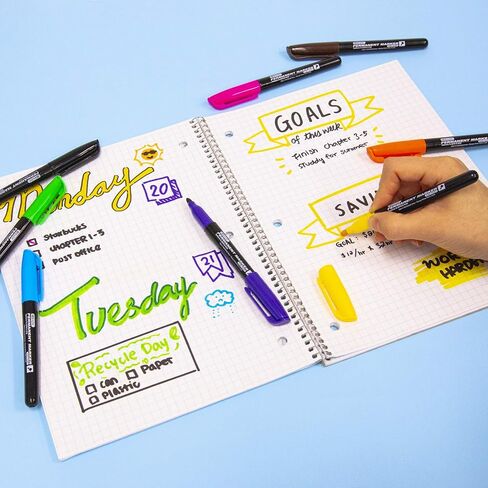 Monday
20
Starbucks
CHAPTER 1-3
POST OFFICE
21
Tuesday
Recycle Day
can Paper
Plastic
GOALS
of this week
Finish Chapter 3-5
Studdy for summer
SAVI
GOAL:
$12/hr
WOR
HARDE
PERMANENT MARKER
PERMANENT MARKER
PERMANENT MARKER
PERMANENT MARKER